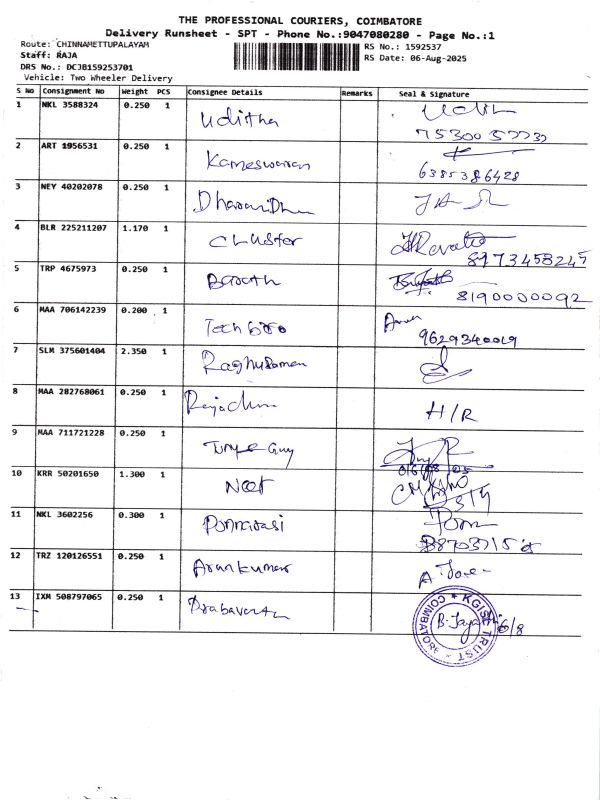 THE PROFESSIONAL COURIERS, COIMBATORE
Delivery Runsheet - SPT - Phone No.:9047080280 - Page No.:1
Route: CHINNAMETTUPALAYAM RS No.: 1592537
Staff: RAJA RS Date: 06-Aug-2025
DRS No.: DCJB159253701
Vehicle: Two Wheeler Delivery
S No Consignment No Weight PCS Consignee Details Remarks Seal & Signature
1 NKL 3588324 0.250 1 Uditha
2 ART 1956531 0.250 1 Kameswaran
6385386428
3 NEY 40202078 0.250 1 Dharani
4 BLR 225211207 1.170 1 Cluster Revathi
8973458245
5 TRP 4675973 0.250 1 Barath
8190000092
6 MAA 706142239 0.200 1 Tech
9629340019
7 SLM 375601404 2.350 1 Raghuraman
8 MAA 282768061 0.250 1 H/R
9 MAA 711721228 0.250 1 Guy
10 KRR 50201650 1.300 1
11 NKL 3602256 0.300 1 Ponnarasi
12 TRZ 120126551 0.250 1 Arunkumar
13 IXM 508797065 0.250 1
KGISL TRUST COIMBATORE
6/8